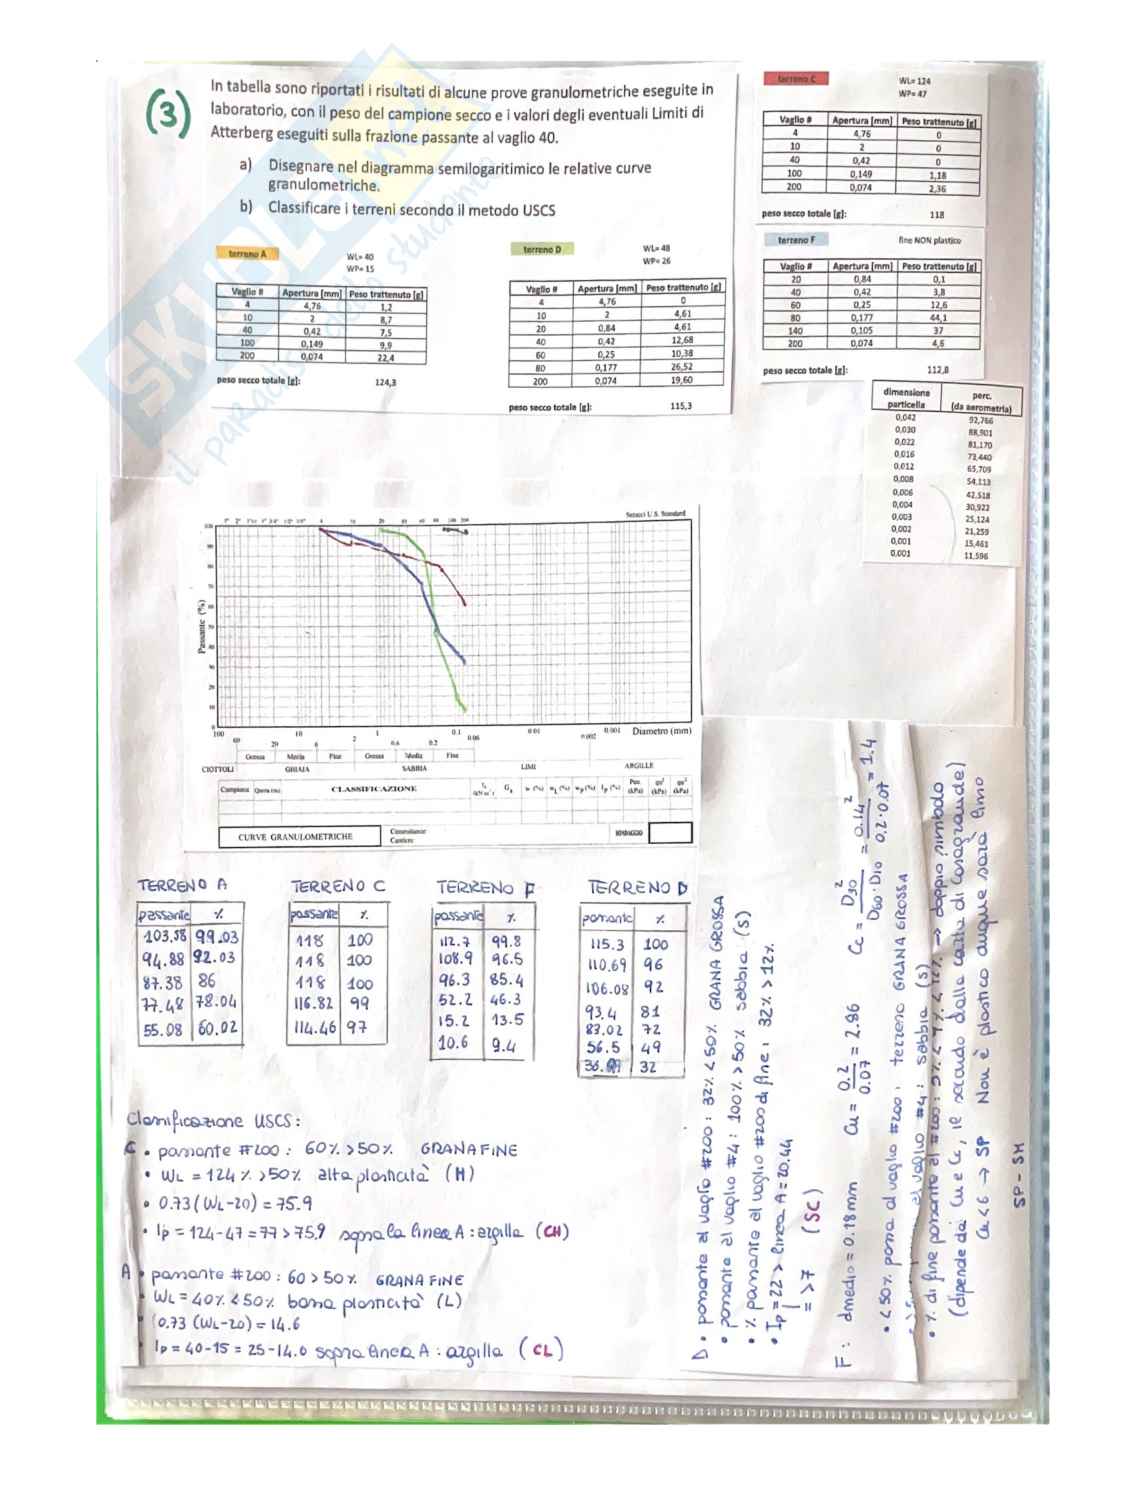 (3)
In tabella sono riportati i risultati di alcune prove granulometriche eseguite in
laboratorio, con il peso del campione secco e i valori degli eventuali Limiti di
Atterberg eseguiti sulla frazione passante al vaglio 40.
a) Disegnare nel diagramma semilogaritimico le relative curve
granulometriche.
b) Classificare i terreni secondo il metodo USCS
terreno A
WL= 40
WP= 15
Vaglio # Apertura [mm] Peso trattenuto [g]
4 4,76 1,2
10 2 8,7
40 0,42 7,5
100 0,149 9,9
200 0,074 22,4
peso secco totale [g]: 124,3
terreno D
WL= 48
WP= 26
Vaglio # Apertura [mm] Peso trattenuto [g]
4 4,76 0
10 2 4,61
20 0,84 4,61
40 0,42 12,68
60 0,25 10,38
80 0,177 26,52
200 0,074 19,60
peso secco totale [g]: 115,3
terreno C
WL= 124
WP= 47
Vaglio # Apertura [mm] Peso trattenuto [g]
4 4,76 0
10 2 0
40 0,42 0
100 0,149 1,18
200 0,074 2,36
peso secco totale [g]: 118
terreno F fine NON plastico
Vaglio # Apertura [mm] Peso trattenuto [g]
20 0,84 0,1
40 0,42 3,8
60 0,25 12,6
80 0,177 44,1
140 0,105 37
200 0,074 4,6
peso secco totale [g]: 112,8
dimensione particella perc. (da aerometria)
0,042 92,766
0,030 88,901
0,022 81,170
0,016 73,440
0,012 65,709
0,008 54,113
0,006 42,518
0,004 30,922
0,003 25,124
0,002 21,259
0,001 15,461
0,001 11,596
Setacci U.S. Standard
Passante (%)
100 10 1 0.1 0.01 0.001 Diametro (mm)
60 20 6 2 0.6 0.2 0.06 0.002
Grossa Media Fine Grossa Media Fine
CIOTTOLI GHIAIA SABBIA LIMI ARGILLE
Campione CLASSIFICAZIONE
CURVE GRANULOMETRICHE
Committente
Cantiere
SONDAGGIO
TERRENO A
passante %
103,58 99.03
94.88 92.03
87.38 86
77.48 78.04
55.08 60.02
TERRENO C
passante %
118 100
118 100
118 100
116.82 99
114.46 97
TERRENO F
passante %
112.7 99.8
108.9 96.5
96.3 85.4
52.2 46.3
15.2 13.5
10.6 9.4
TERRENO D
passante %
115.3 100
110.69 96
106.08 92
93.4 81
83.02 72
56.5 49
32
Classificazione USCS:
C • passante #200 : 60% > 50% GRANA FINE
• WL = 124% > 50% alta plasticità (H)
• 0.73 (WL-20) = 75.9
• Ip = 124-47 = 77 > 75.9 sopra la linea A : argilla (CH)
A • passante #200 : 60 > 50% GRANA FINE
• WL = 40% < 50% bassa plasticità (L)
• (0.73 (WL-20) = 14.6
• Ip = 40-15 = 25-14.6 sopra linea A : argilla (CL)
D • passante al vaglio #200 : 32% < 50% GRANA GROSSA
• passante al vaglio #4 : 100% > 50% sabbia (S)
• % passante al vaglio #200 di fine : 32% > 12%
• Ip = 22 > linea A = 20.44
= > 7 (SC)
F : dmedio = 0.18mm Cu = 0.2/0.07 = 2.86 Cc = D30²/D60·D10 = 0.14²/0.2·0.07 = 1.4
• < 50% passa al vaglio #200 : terreno GRANA GROSSA
al vaglio #4 : sabbia (S)
• % di fine passante al #200 : 5% < 9% < 12% → doppio simbolo
(dipende dai Cu e Cc, le secondo dalla carta di Casagrande)
Cu < 6 → SP Non è plastico dunque sarà limo
SP-SM
SKUOLA.net
il paradiso dello studente